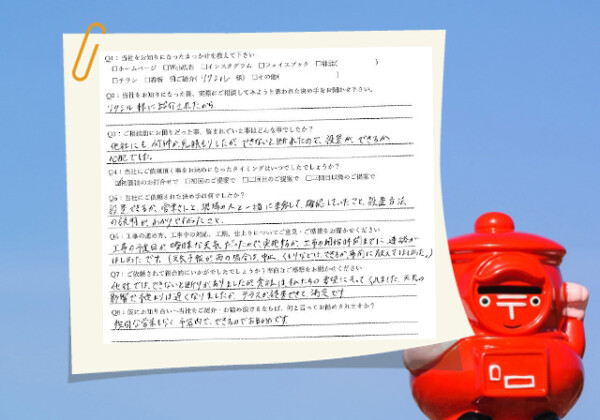 Q1：当社をお知りになったきっかけを教えて下さい
□ホームページ □Web広告 □インスタグラム □フェイスブック □雑誌( )
□チラシ □看板 ご紹介( リクシル 様) □その他( )
Q2：当社をお知りになった後、実際にご相談してみようと思われた決め手をお聞かせ下さい。
リクシル様に紹介されたから
Q3：ご相談前にお困りだった事、悩まれていた事はどんな事でしたか？
他社にも何件か見積もりしたができないと断れたので、設置が、できるか
心配でした。
Q4：当社にご依頼頂く事をお決めになったタイミングはいつでしたでしょうか？
初回のお打合せで □初回のご提案で □二回目のご提案で □三回目以降のご提案で
Q5：当社にご依頼された決め手は何でしたか？
設置できるか、営業さんと、現場の人と一緒に来宅して、確認していたこと、設置方法
の説明が、わかりやすかったこと。
Q6：工事の進め方、工事中の対応、工期、仕上りについてご意見・ご感想をお聞かせください
工事の予定日が曖昧な天気だったので、実施動か、工事の開始時前までに連絡が
ほしかったです。(天気予報が雨の場合は、中止、くもりなどは、できるか事前に伝えてほしかった。)
Q7：ご依頼されて総合的にいかがでしたでしょうか？率直なご感想をお聞かせください
他社では、できないと断りがありましたが、貴社は、私たちの要望にそってくれました。天気の
影響で予定よりは遅くなりましたが、テラスが設置できて、満足です
Q8：仮にお知り合いへ当社をご紹介・お勧め頂けるならば、何と言ってお勧めされますか？
強引な営業もなく予算内で、できるのでお勧めです。